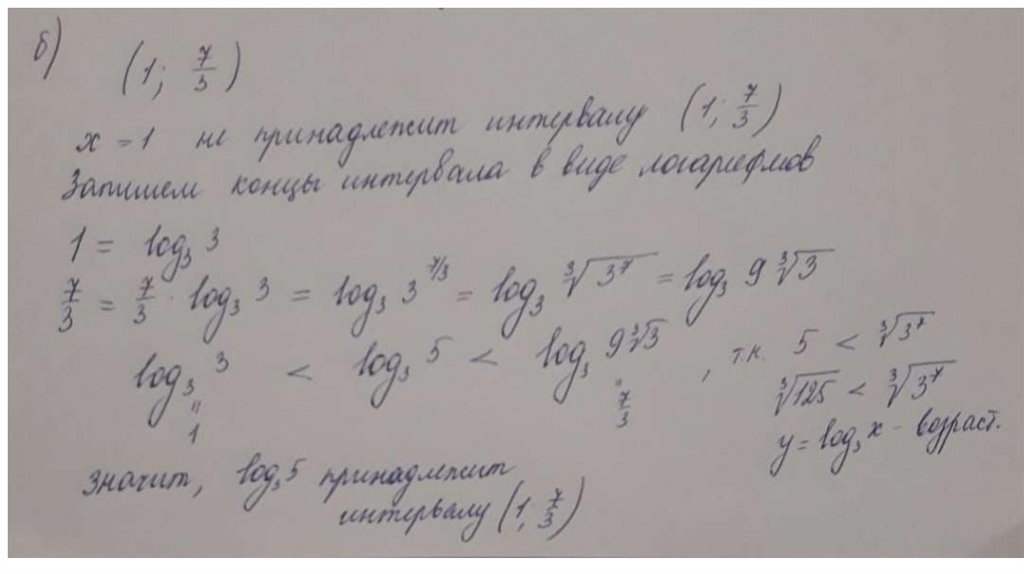 б)
(1; 7/3)
x = 1 не принадлежит интервалу (1; 7/3)
Запишем концы интервала в виде логарифмов
1 = log₃ 3
7/3 = 7/3 · log₃ 3 = log₃ 3^(7/3) = log₃ ∛(3⁷) = log₃ 9∛3
log₃ 3 < log₃ 5 < log₃ 9∛3 , т.к. 5 < ∛(3⁷)
" " ∛125 < ∛(3⁷)
1 7/3 y = log₃ x - возраст.
значит, log₃ 5 принадлежит
интервалу (1; 7/3)